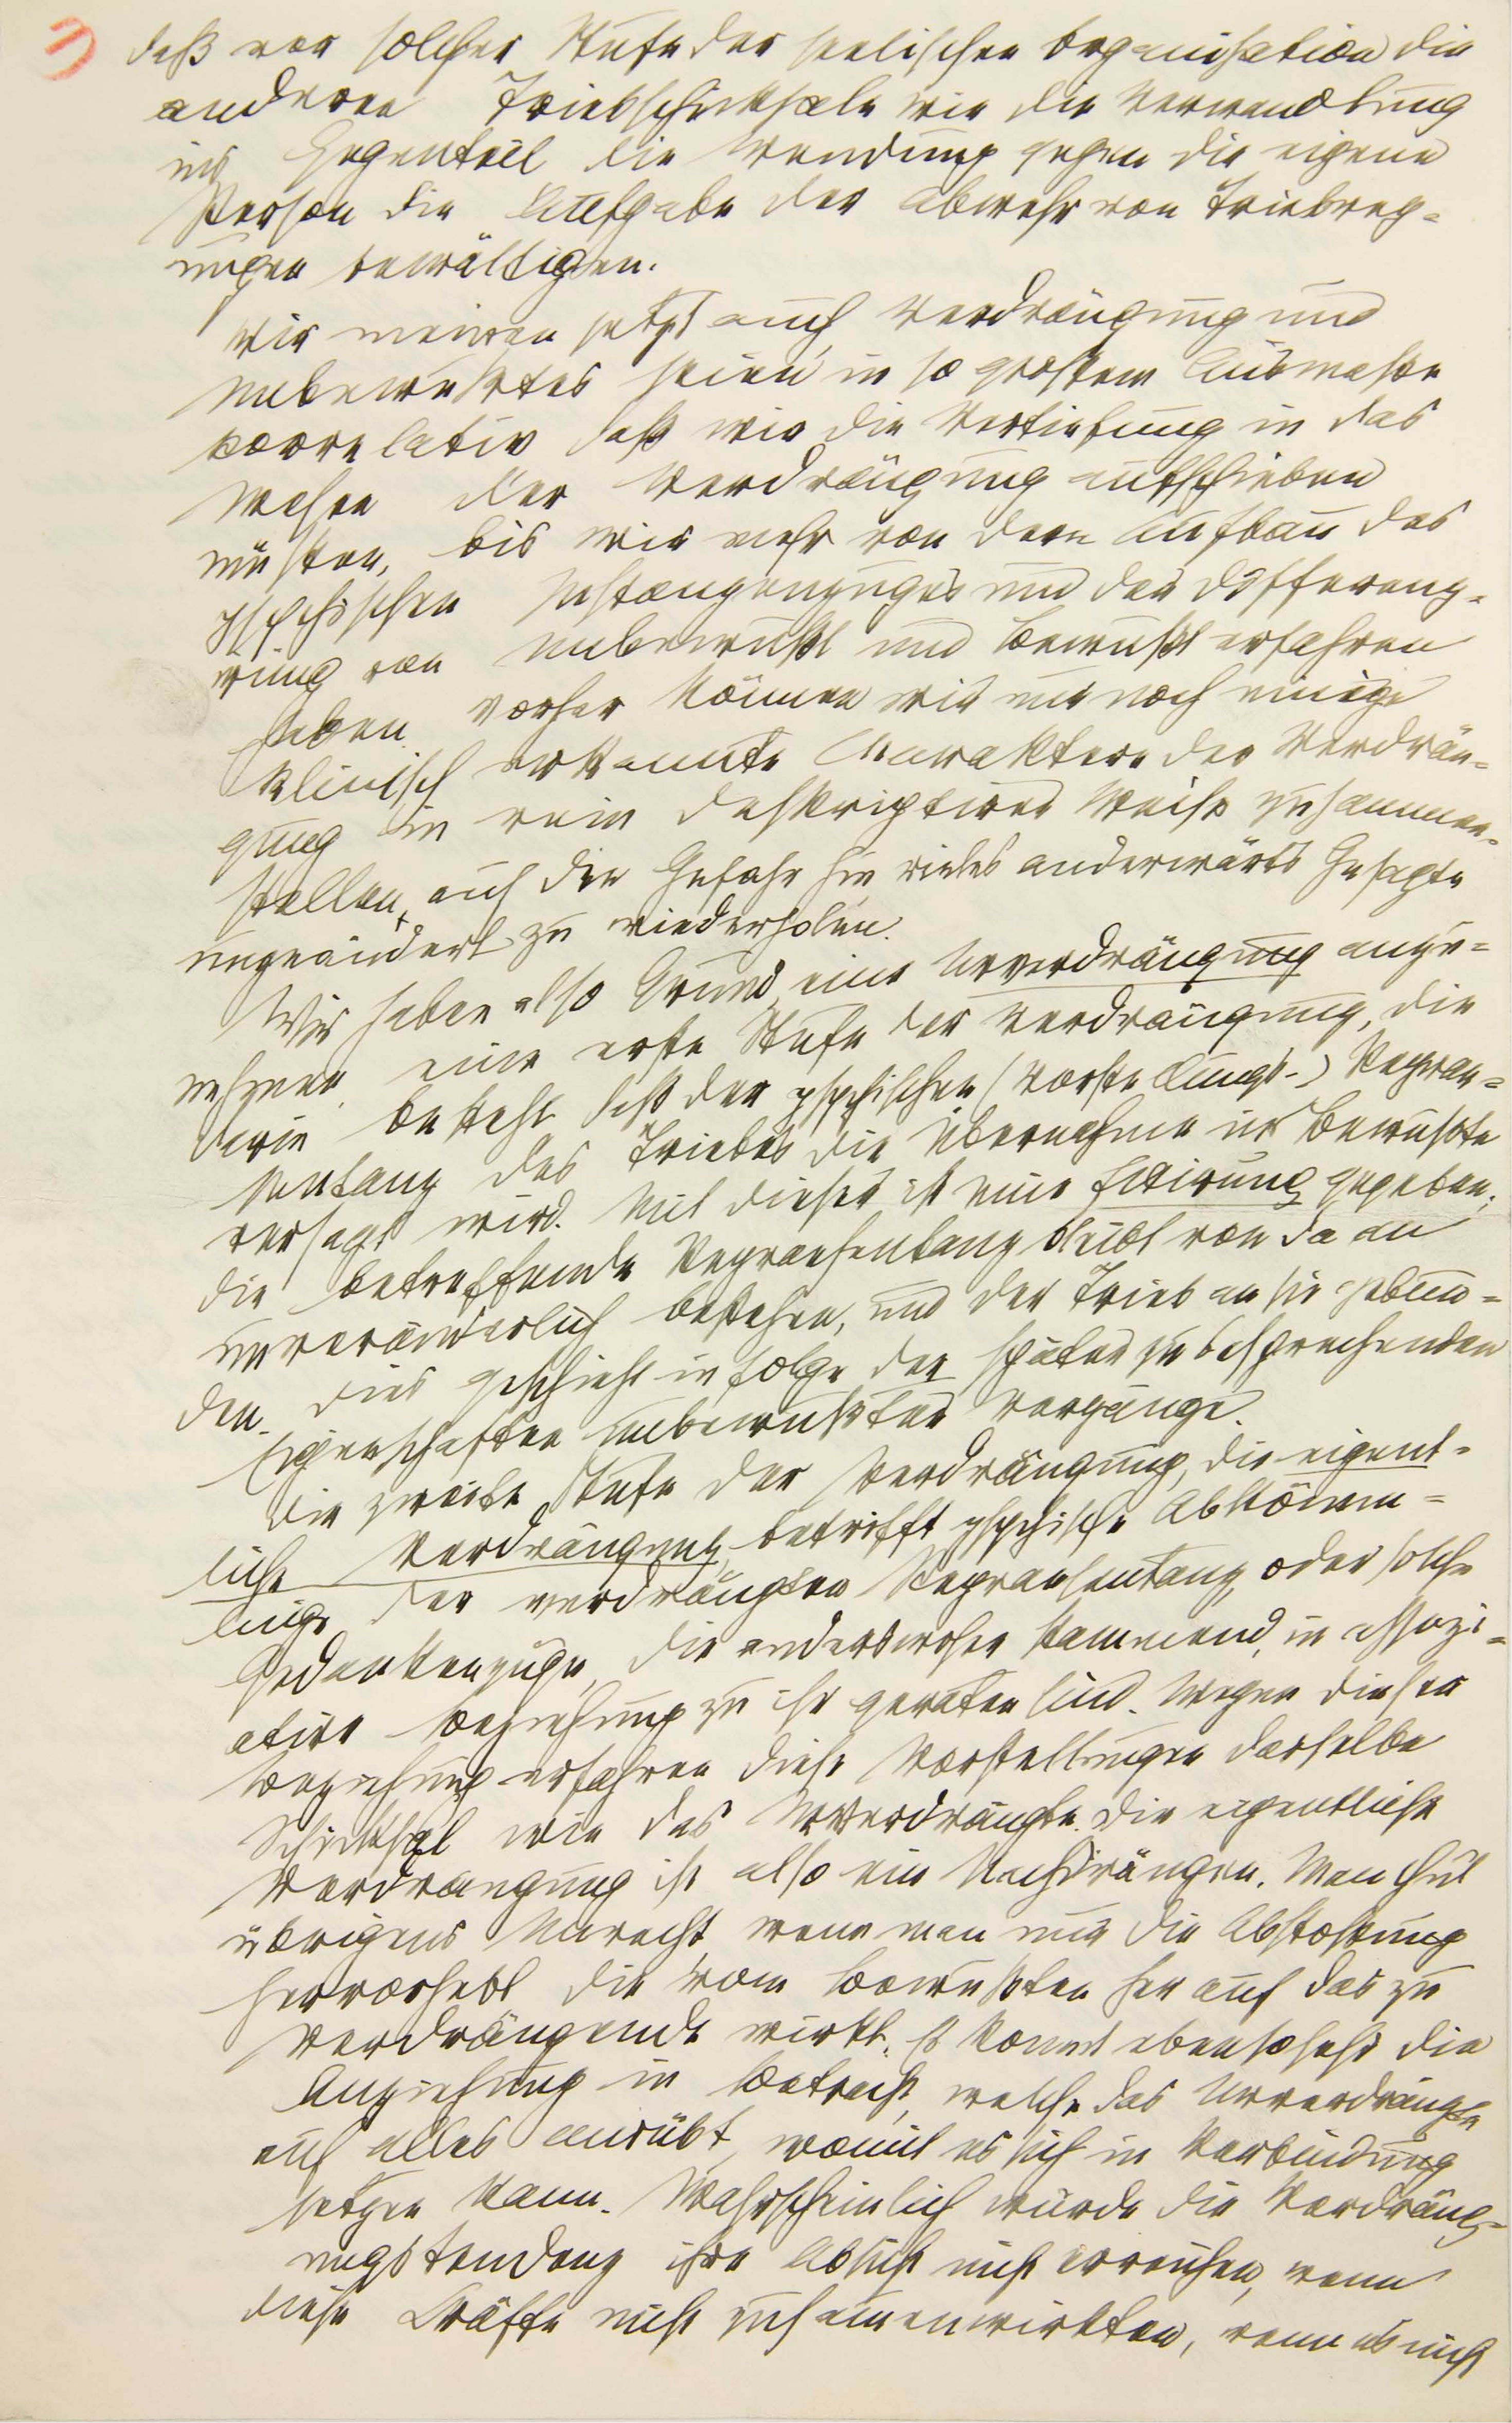 daß vor solcher Stufe der seelischen Organisation die
anderen Triebschicksale wie die Verwandlung
ins Gegenteil die Wendung gegen die eigene
Person die Aufgabe der Abwehr von Triebreg-
ungen bewältigen.
Wir meinen jetzt auch, Verdrängung und
Unbewußtes seien in so großem Ausmaße
korrelativ daß wir die Vertiefung in das
Wesen der Verdrängung aufschieben
müßten, bis wir mehr von dem Aufbau des
psychischen Instanzenzuges und der Differenz-
rung von Unbewußt und Bewußt erfahren
haben. Vorher können wir nur noch einige
klinisch erkannte Charaktere der Verdrän-
gung in rein deskriptiver Weise zusammen-
stellen, auf die Gefahr hin vieles anderwärts Gesagte
ungeändert zu wiederholen.
Wir haben also Grund, eine Urverdrängung anzu-
nehmen, eine erste Stufe der Verdrängung, die
darin besteht daß der psychischen (Vorstellungs-) Repräs-
entanz des Triebes die Übernahme ins Bewußte
versagt wird. Mit dieser ist eine Fixirung gegeben;
die betreffende Repraesentanz bleibt von da an
unveränderlich bestehen, und der Trieb an sie gebun-
den. Dies geschieht infolge der später zu besprechenden
Eigenschaften unbewußter Vorgänge.
Die zweite Stufe der Verdrängung, die eigent-
liche Verdrängung, betrifft psychische Abkömm-
linge der verdrängten Repraesentanz, oder solche
Gedankenzüge, die anderswoher stammend, in assozi-
ative Beziehung zu ihr geraten sind. Wegen dieser
Beziehung erfahren diese Vorstellungen dasselbe
Schicksal wie das Urverdrängte. Die eigentliche
Verdrängung ist also ein Nachdrängen. Man thut
übrigens Unrecht, wenn man nur die Abstoßung
hervorhebt die vom Bewußten her auf das zu
Verdrängende wirkt. Es kommt ebensosehr die
Anziehung in Betracht, welche das Urverdrängte
auf alles ausübt, womit es sich in Verbindung
setzen kann. Wahrscheinlich würde die Verdräng-
ungstendenz ihre Absicht nicht erreichen, wenn
diese Kräfte nicht zusammenwirkten, wenn es nicht